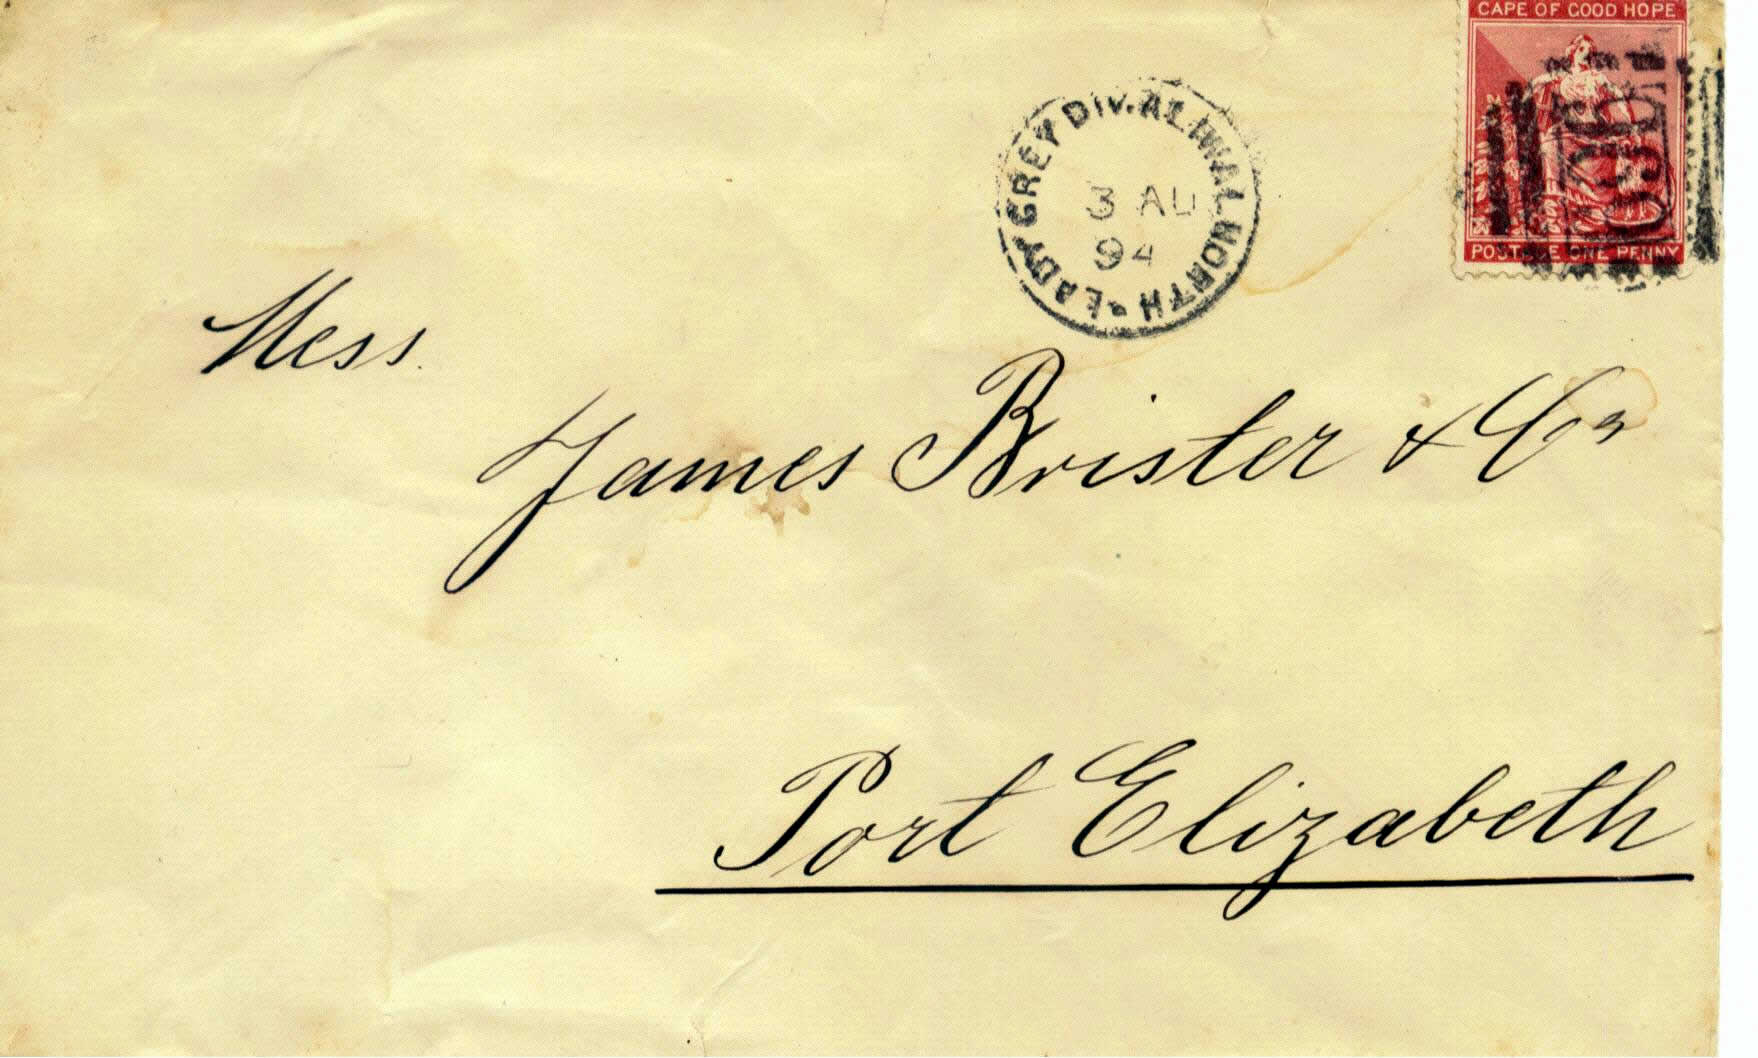 CAPE OF GOOD HOPE
POSTAGE ONE PENNY
LADY GREY DIV. ALIWAL NORTH
3 AU
94
Mess.
James Brister & Co
Port Elizabeth